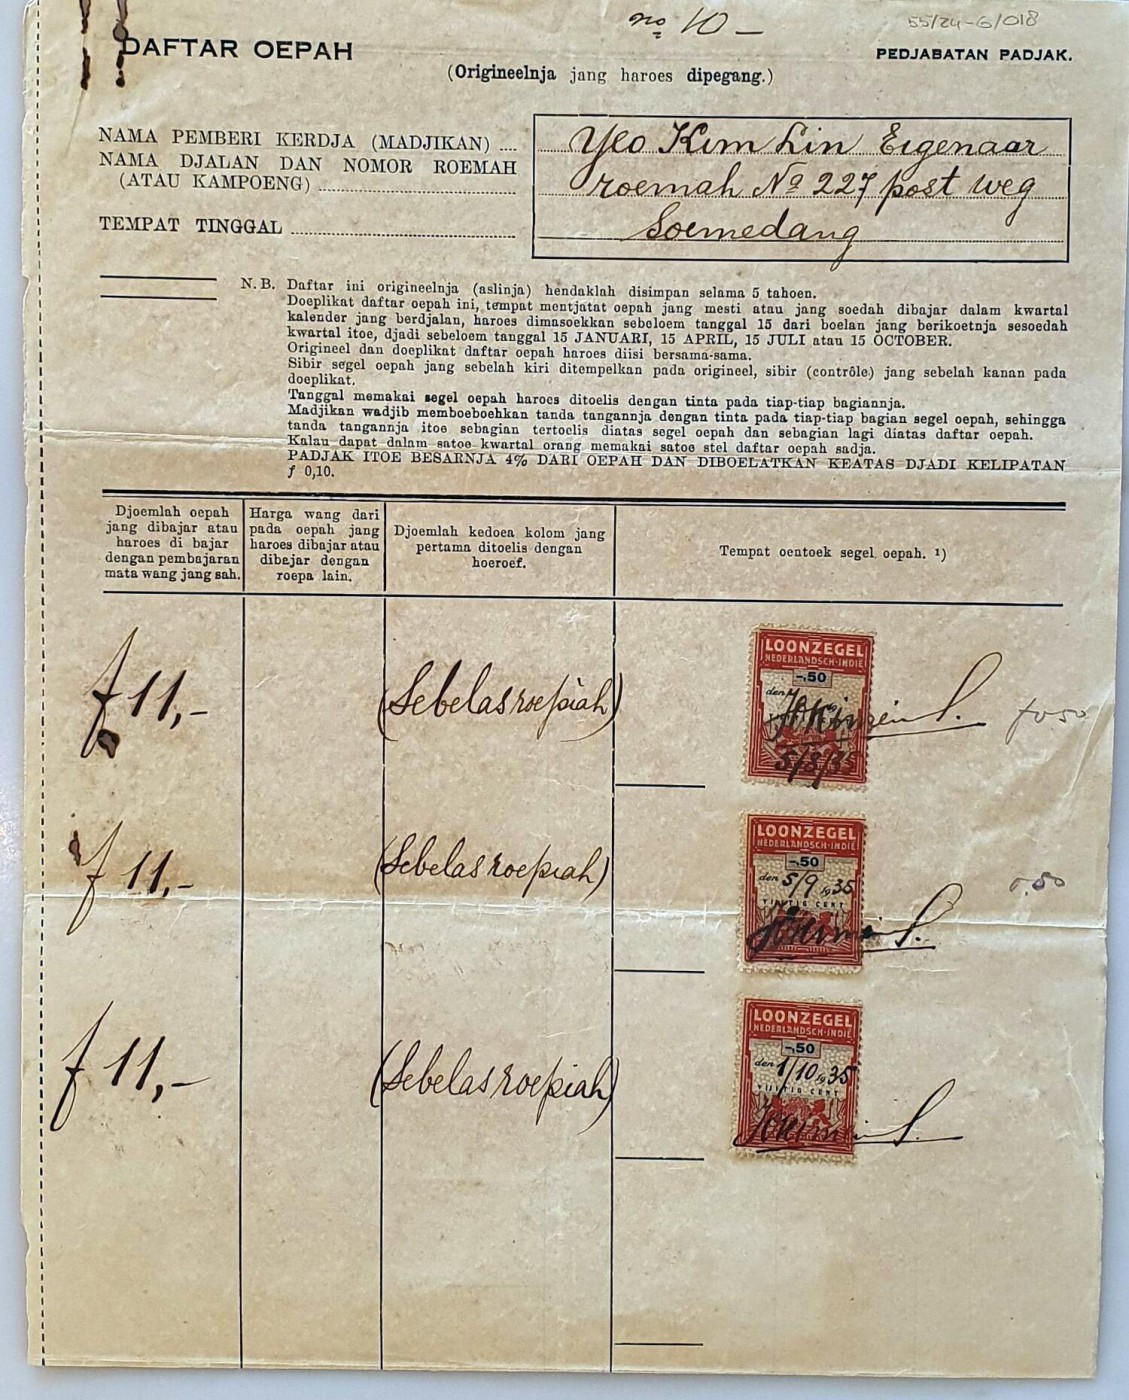 no 10 –
55/24-6/018
DAFTAR OEPAH
PEDJABATAN PADJAK.
(Origineelnja jang haroes dipegang.)
NAMA PEMBERI KERDJA (MADJIKAN) ....
NAMA DJALAN DAN NOMOR ROEMAH
(ATAU KAMPOENG)
TEMPAT TINGGAL
Yeo Kim Lin Eigenaar
roemah No 227 post weg
Soemedang
N. B. Daftar ini origineelnja (aslinja) hendaklah disimpan selama 5 tahoen.
Doeplikat daftar oepah ini, tempat mentjatat oepah jang mesti atau jang soedah dibajar dalam kwartal
kalender jang berdjalan, haroes dimasoekkan sebeloem tanggal 15 dari boelan jang berikoetnja sesoedah
kwartal itoe, djadi sebeloem tanggal 15 JANUARI, 15 APRIL, 15 JULI atau 15 OCTOBER.
Origineel dan doeplikat daftar oepah haroes diisi bersama-sama.
Sibir segel oepah jang sebelah kiri ditempelkan pada origineel, sibir (contrôle) jang sebelah kanan pada
doeplikat.
Tanggal memakai segel oepah haroes ditoelis dengan tinta pada tiap-tiap bagiannja.
Madjikan wadjib memboeboehkan tanda tangannja dengan tinta pada tiap-tiap bagian segel oepah, sehingga
tanda tangannja itoe sebagian tertoelis diatas segel oepah dan sebagian lagi diatas daftar oepah.
Kalau dapat dalam satoe kwartal orang memakai satoe stel daftar oepah sadja.
PADJAK ITOE BESARNJA 4% DARI OEPAH DAN DIBOELATKAN KEATAS DJADI KELIPATAN
f 0,10.
Djoemlah oepah
jang dibajar atau
haroes di bajar
dengan pembajaran
mata wang jang sah.
Harga wang dari
pada oepah jang
haroes dibajar atau
dibajar dengan
roepa lain.
Djoemlah kedoea kolom jang
pertama ditoelis dengan
hoeroef.
Tempat oentoek segel oepah. 1)
f 11,–
(Sebelas roepiah)
LOONZEGEL
NEDERLANDSCH-INDIË
-.50
den
5/8/35
f 0 50
f 11,–
(Sebelas roepiah)
LOONZEGEL
NEDERLANDSCH-INDIË
-.50
den 5/9 1935
VIJFTIG CENT
0.50
f 11,–
(Sebelas roepiah)
LOONZEGEL
NEDERLANDSCH-INDIË
-.50
den 1/10 1935
VIJFTIG CENT